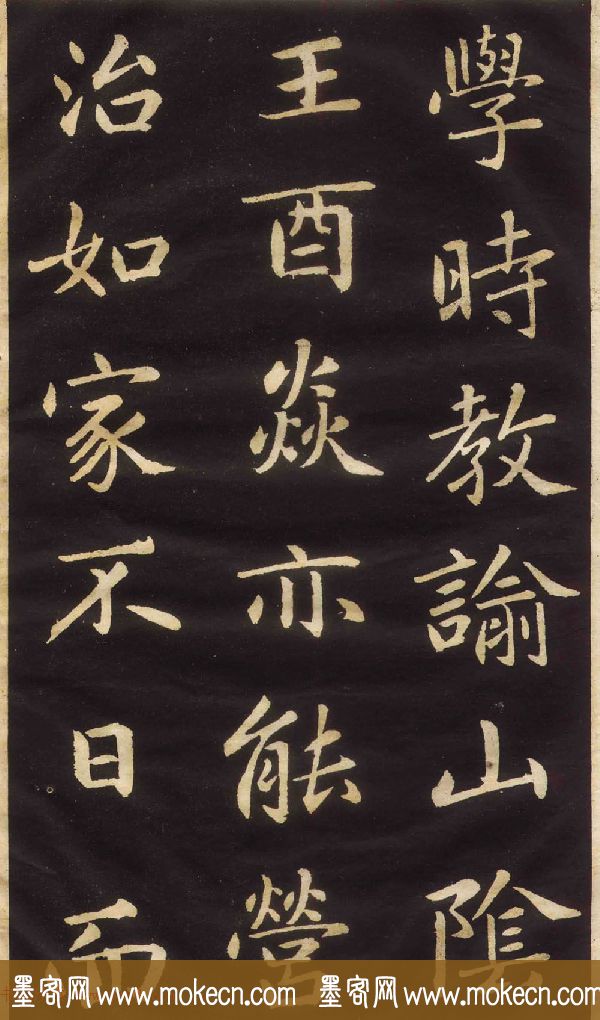 學時教諭山陰
王酉焱亦能營
治如家不日而
墨客网 www.mokecn.com 墨客网 www.mokecn.com